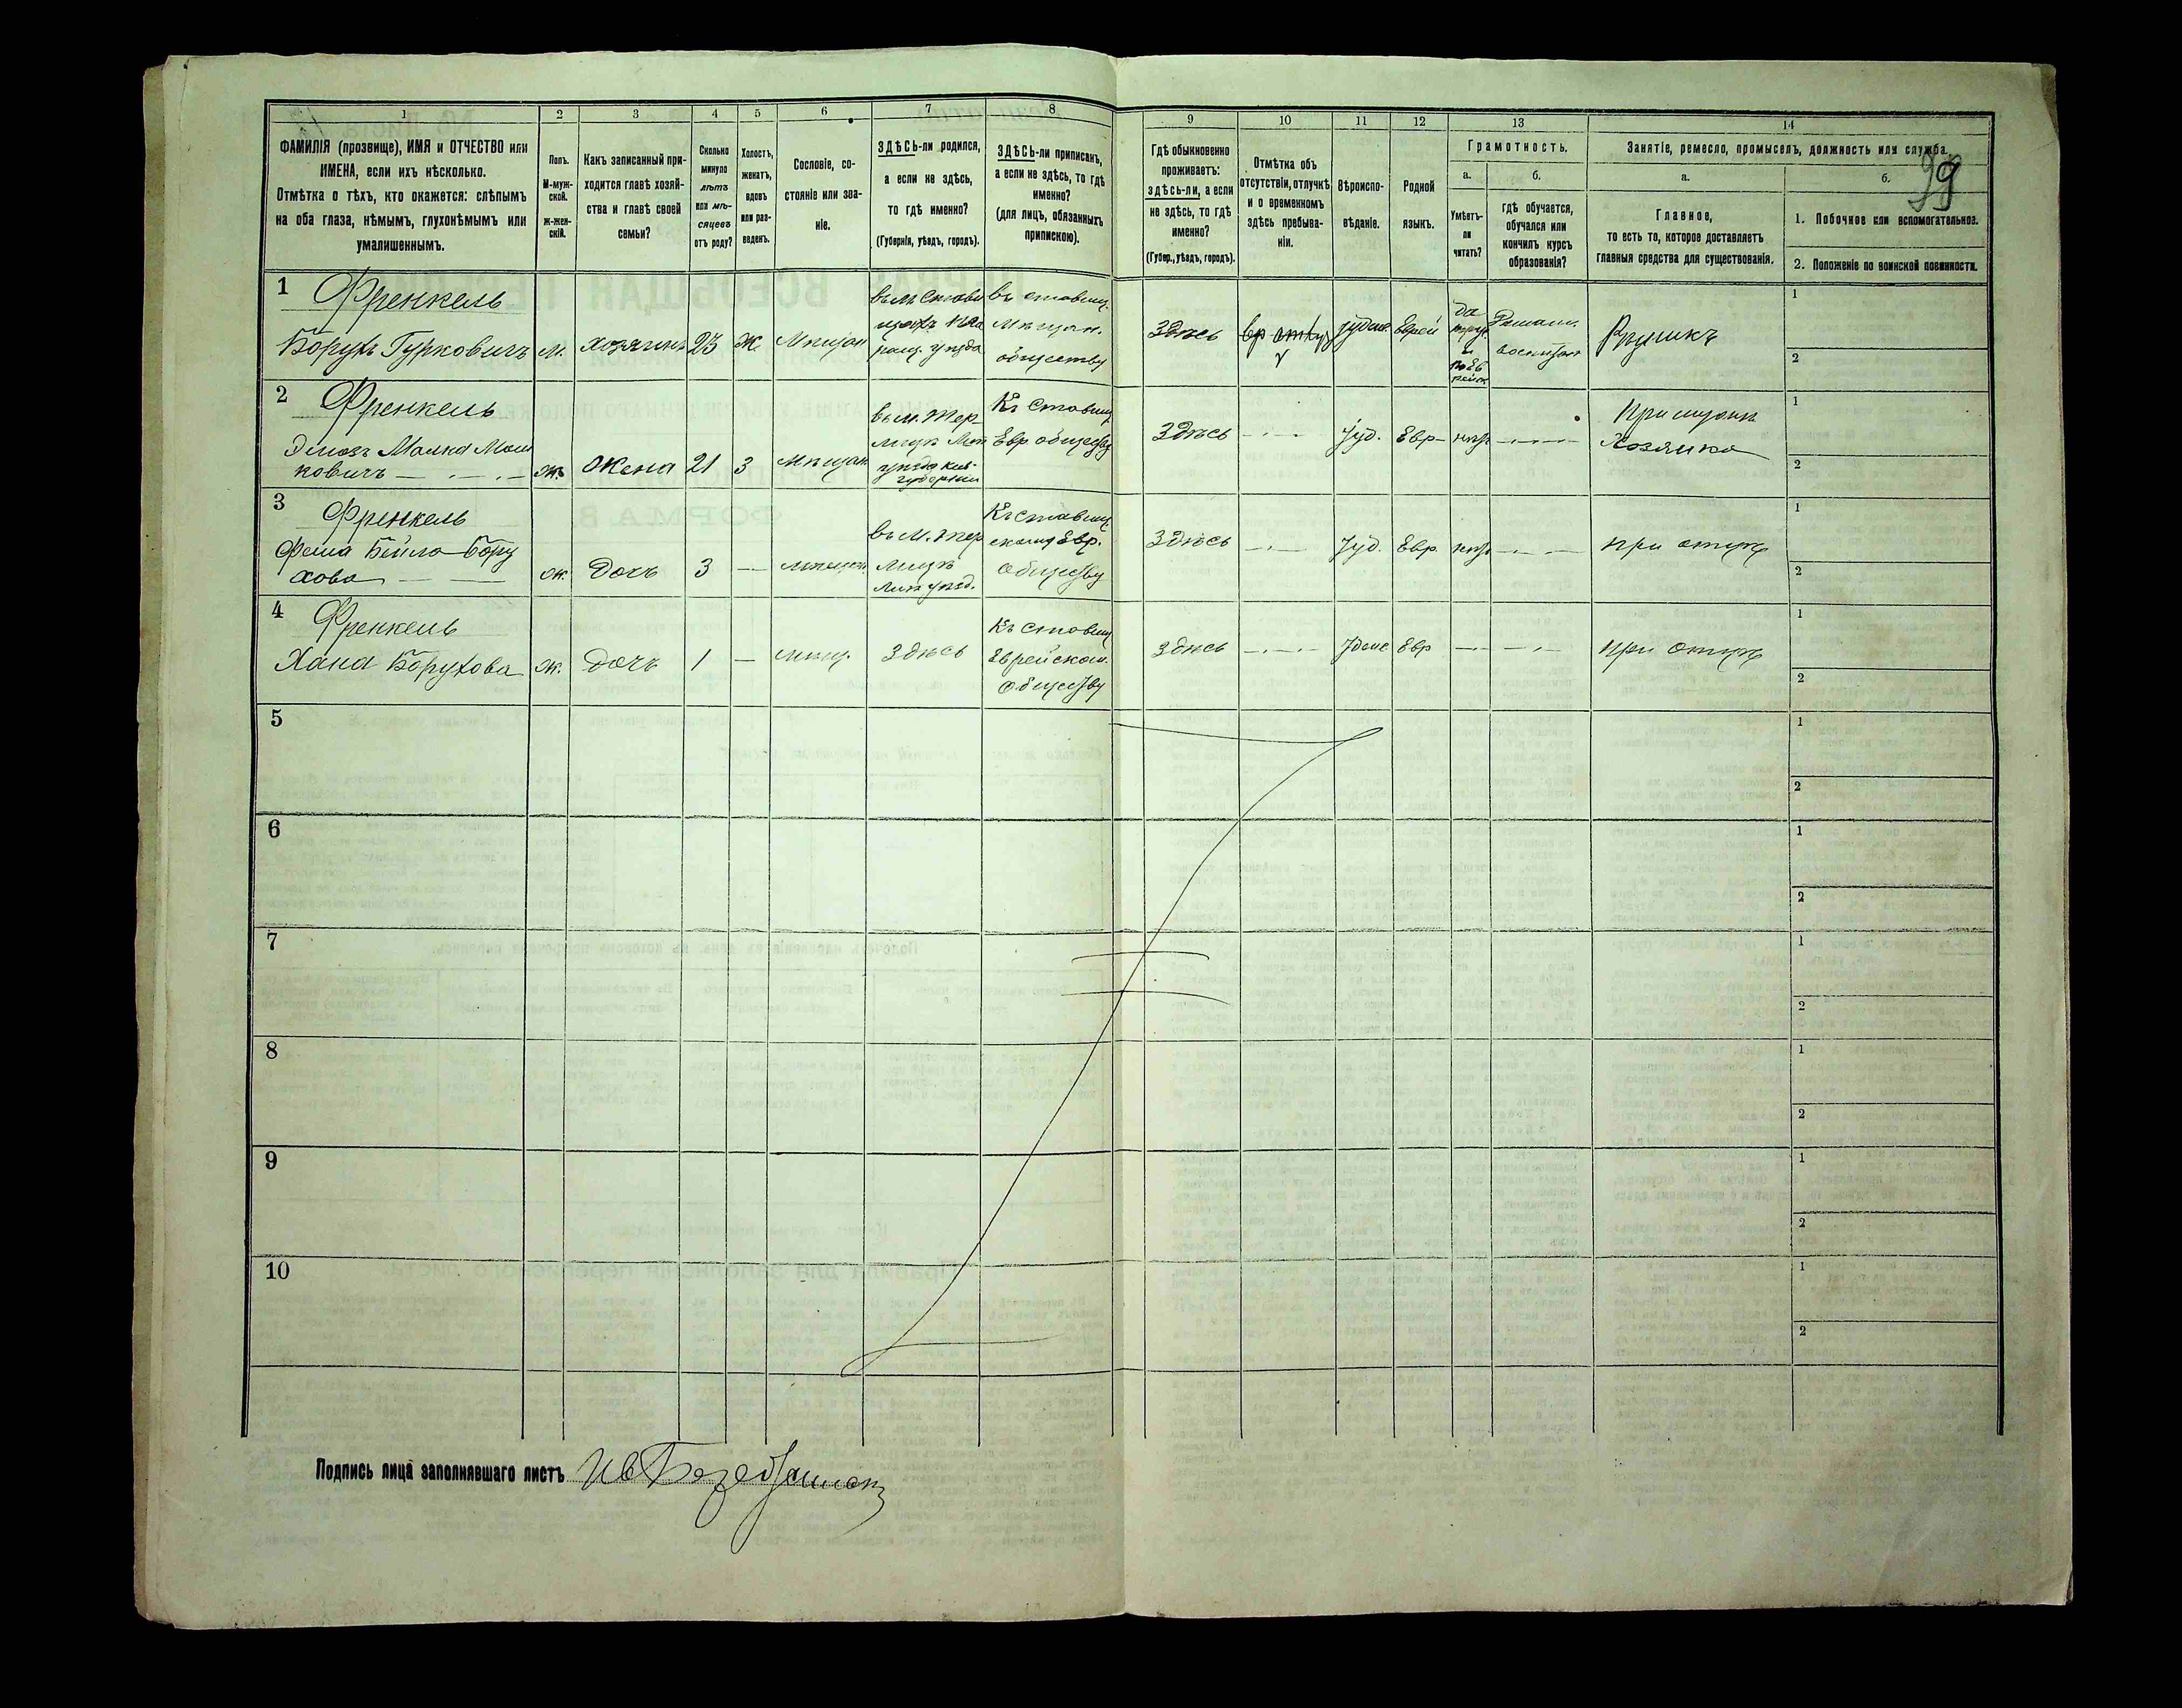 1
2
3
4
5
6
7
8
ФАМИЛІЯ (прозвище), ИМЯ и ОТЧЕСТВО или
ИМЕНА, если ихъ нѣсколько.
Отмѣтка о тѣхъ, кто окажется: слѣпымъ
на оба глаза, нѣмымъ, глухонѣмымъ или
умалишеннымъ.
Полъ.
М-муж-
ской.
ж-жен-
скій.
Какъ записанный при-
ходится главѣ хозяй-
ства и главѣ своей
семьи?
Сколько
минуло
лѣтъ
или мѣ-
сяцевъ
отъ роду?
Холостъ,
женатъ,
вдовъ
или раз-
веденъ.
Сословіе, со-
стояніе или зва-
ніе.
ЗДѢСЬ-ли родился,
а если не здѣсь,
то гдѣ именно?
(Губернія, уѣздъ, городъ).
ЗДѢСЬ-ли приписанъ,
а если не здѣсь, то гдѣ
именно?
(для лицъ, обязанныхъ
припискою).
9
10
11
12
13
14
Гдѣ обыкновенно
проживаетъ:
здѣсь-ли, а если
не здѣсь, то гдѣ
именно?
(Губер., уѣздъ, городъ).
Отмѣтка объ
отсутствіи, отлучкѣ
и о временномъ
здѣсь пребыва-
ніи.
Вѣроиспо-
вѣданіе.
Родной
языкъ.
Грамотность.
а.
б.
Умѣетъ-
ли
читать?
гдѣ обучается,
обучался или
кончилъ курсъ
образованія?
Занятіе, ремесло, промыселъ, должность или служба.
99
а.
б.
Главное,
то есть то, которое доставляетъ
главныя средства для существованія.
1. Побочное или вспомогательное.
2. Положеніе по воинской повинности.
1 Френкель
Борухъ Гурковичъ
м.
хозяинъ
23
ж
Мѣщан
въ
уѣзда
въ ставищ.
Мѣщан.
обществу
Здѣсь
Еврей
да
и
по Ев
рейск
1
2
2 Френкель
Малка Мош
ковичъ
ж.
жена
21
З
Мѣщан
въ м. Тер
лицѣ
уѣзда Кіев-
губерніи
Къ Ставищ.
Евр обществу
Здѣсь
Іуд.
Евр
нѣт
При мужѣ
Хозяйка
1
2
3 Френкель
Бейла Бору
хова
ж.
дочь
3
въ м. Тер
лицѣ
уѣзд.
Къ Ставищ.
скому Евр.
обществу
Здѣсь
Іуд.
Евр.
нѣт
при отцѣ
1
2
4 Френкель
Хана Борухова
ж.
дочь
1
мѣщ.
Здѣсь
Къ Ставищ
Еврейском.
обществу
Здѣсь
Евр
при отцѣ
1
2
5
1
2
6
1
2
7
1
2
8
1
2
9
1
2
10
1
2
Подпись лица заполнявшаго листъ